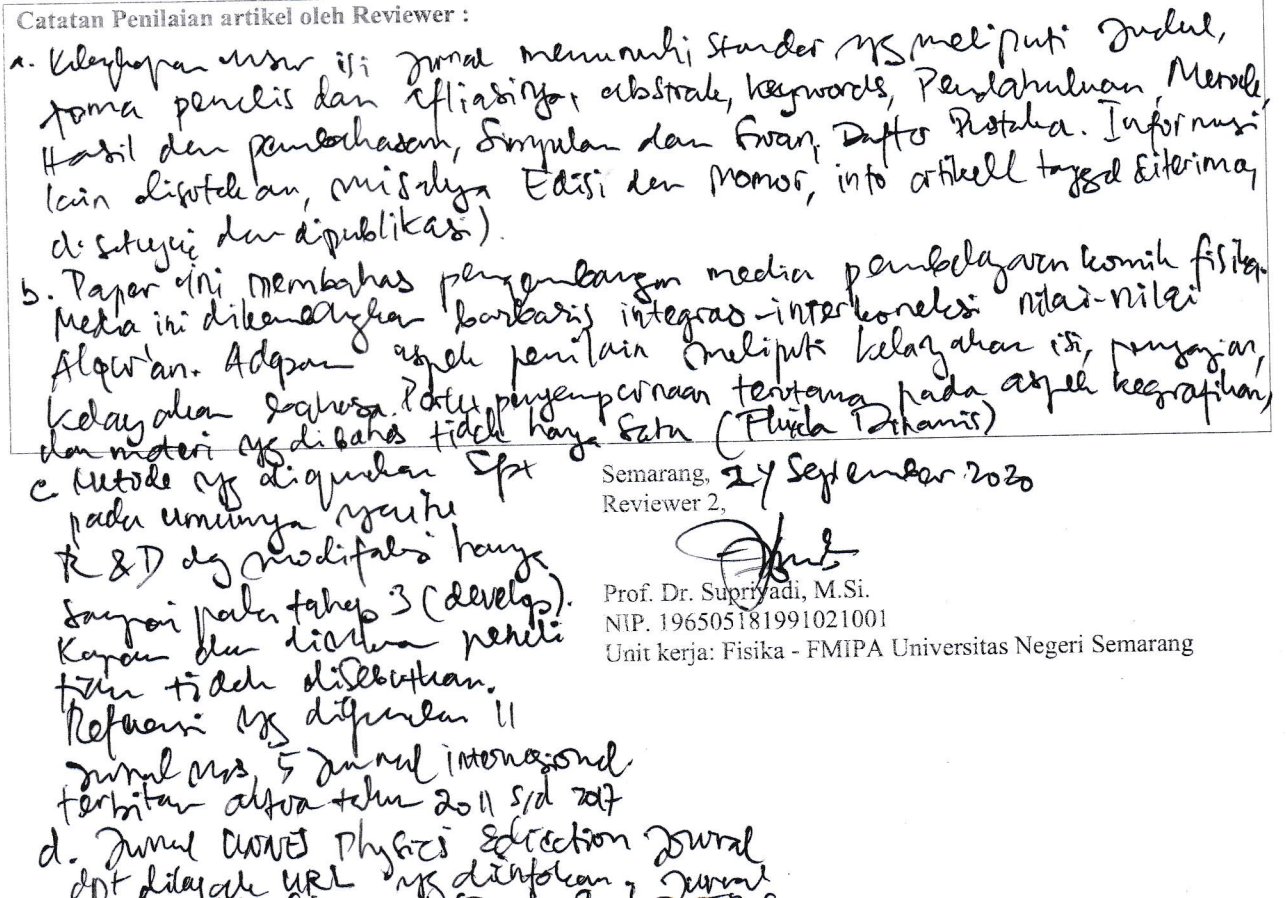 Catatan Penilaian artikel oleh Reviewer :
a. Kelengkapan unsur isi jurnal memenuhi standar yg meliputi Judul,
nama penulis dan afiliasinya, abstrak, keywords, Pendahuluan, Metode,
Hasil dan pembahasan, Simpulan dan Saran, Daftar Pustaka. Informasi
lain disertakan, misalnya Edisi dan Nomor, info artikel tanggal diterima,
disetujui dan dipublikasi).
b. Paper ini membahas pengembangan media pembelajaran komik fisika.
Media ini dikembangkan berbasis integrasi-interkoneksi nilai-nilai
Alqur'an. Adapun aspek penilain meliputi kelayakan isi, penyajian,
kelayakan bahasa. Perlu penyempurnaan terutama pada aspek kegrafikan,
dan materi yg dibahas tidak hanya satu (Fluida Dinamis)
c. Metode yg digunakan spt
pada umumnya yaitu
R & D dg modifikasi hanya
sampai pada tahap 3 (develop).
Kapan dan dimana peneli
tian tidak disebutkan.
Referensi yg digunakan 11
jurnal nas, 5 jurnal internasional.
terbitan antara tahun 2011 s/d 2017
d. Jurnal UNNES Physics Education Journal
dpt dilacak URL yg diinfokan, jurnal
Semarang, 24 September 2020
Reviewer 2,
Prof. Dr. Supriyadi, M.Si.
NIP. 196505181991021001
Unit kerja: Fisika - FMIPA Universitas Negeri Semarang